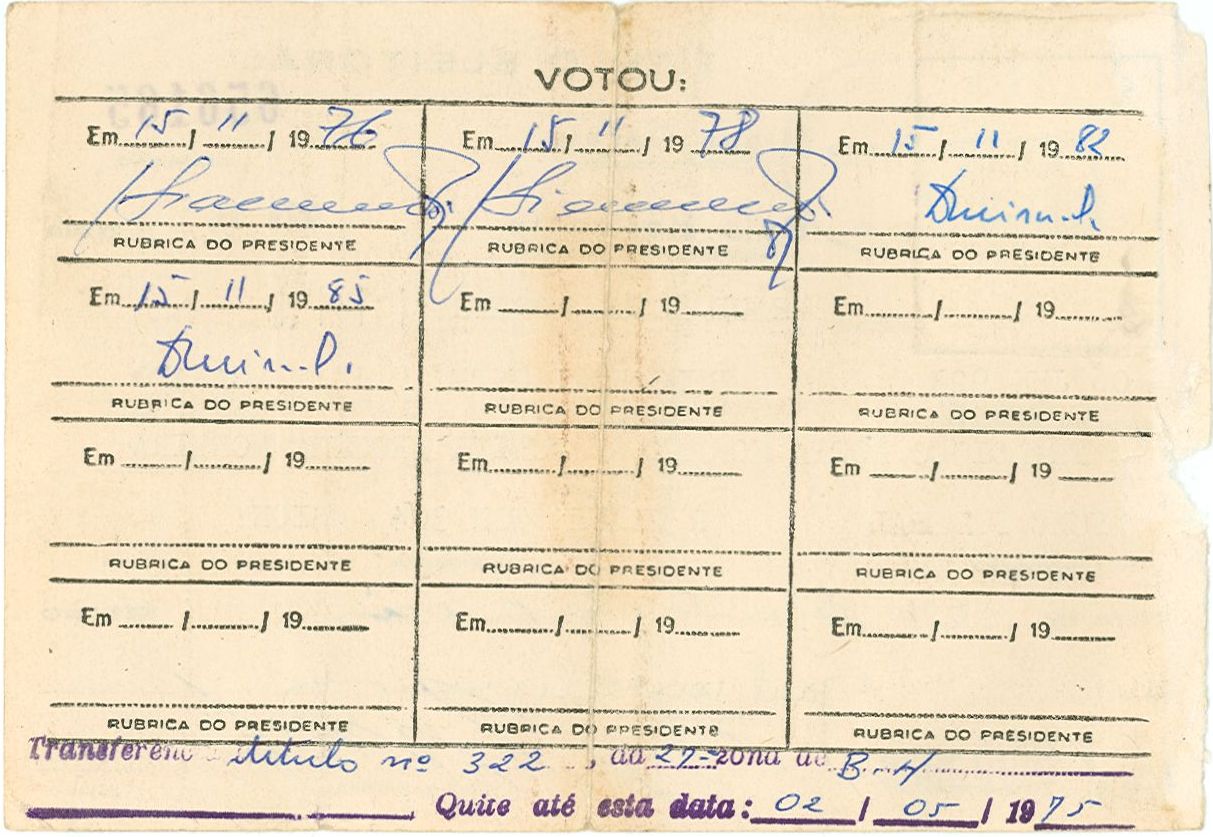 VOTOU:
Em 15 / 11 / 19 76 Em 15 / 11 / 19 78 Em 15 / 11 / 19 82
RUBRICA DO PRESIDENTE RUBRICA DO PRESIDENTE RUBRICA DO PRESIDENTE
Em 15 / 11 / 19 85 Em ....../......./ 19........ Em ....../......./ 19........
RUBRICA DO PRESIDENTE RUBRICA DO PRESIDENTE RUBRICA DO PRESIDENTE
Em ....../......./ 19........ Em ....../......./ 19........ Em ....../......./ 19........
RUBRICA DO PRESIDENTE RUBRICA DO PRESIDENTE RUBRICA DO PRESIDENTE
Em ....../......./ 19........ Em ....../......./ 19........ Em ....../......./ 19........
RUBRICA DO PRESIDENTE RUBRICA DO PRESIDENTE RUBRICA DO PRESIDENTE
Transferenc titulo nº 322, da 27ª zona de B. H.
Quite até esta data: 02 / 05 / 1975